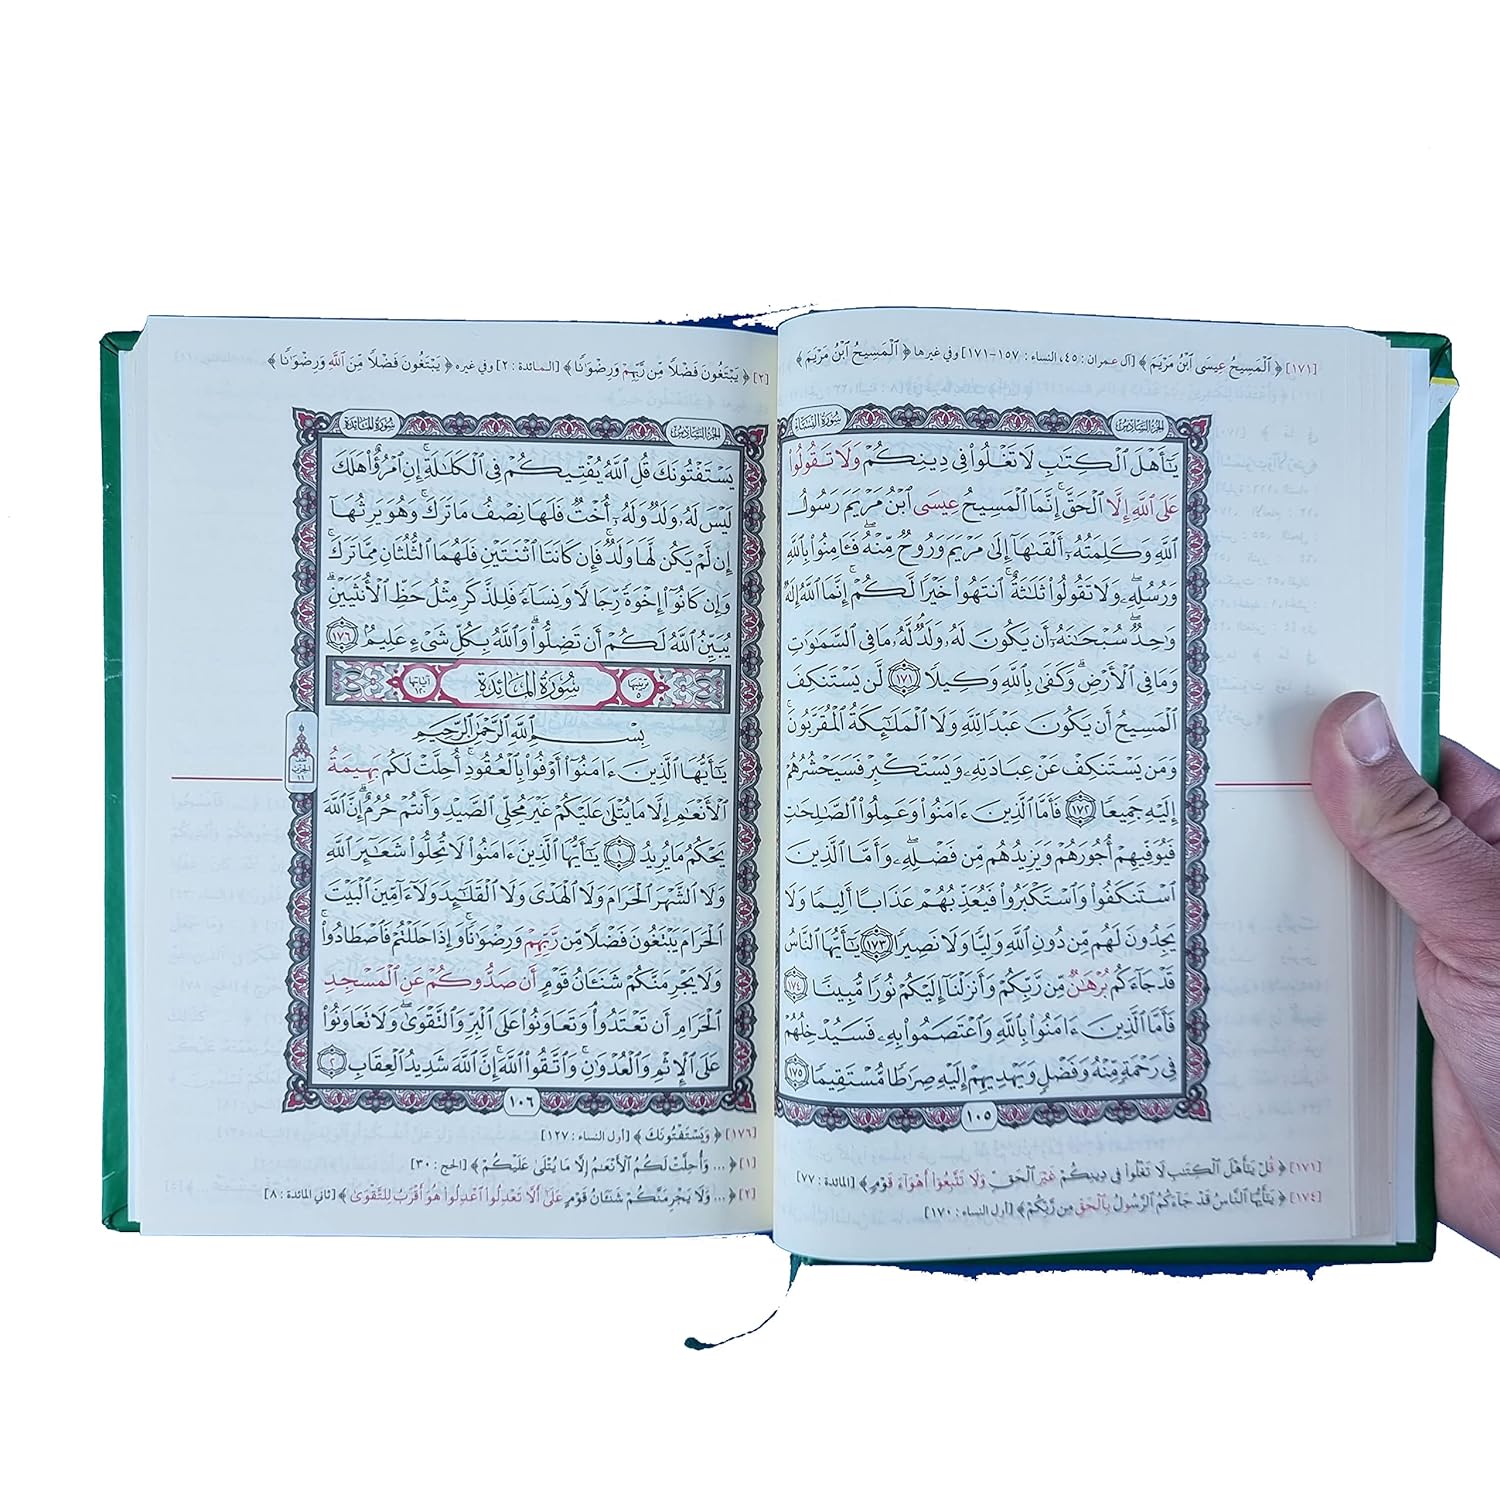 [١٧١] ﴿ ٱلْمَسِيحُ عِيسَى ٱبْنُ مَرْيَمَ ﴾ [آل عمران : ٤٥، النساء : ١٥٧-١٧١] وفي غيرها ﴿ ٱلْمَسِيحُ ٱبْنُ مَرْيَمَ ﴾
الجزء السادس سورة النساء
يَٰٓأَهْلَ ٱلْكِتَٰبِ لَا تَغْلُوا۟ فِى دِينِكُمْ وَلَا تَقُولُوا۟
عَلَى ٱللَّهِ إِلَّا ٱلْحَقَّ ۚ إِنَّمَا ٱلْمَسِيحُ عِيسَى ٱبْنُ مَرْيَمَ رَسُولُ
ٱللَّهِ وَكَلِمَتُهُۥٓ أَلْقَىٰهَآ إِلَىٰ مَرْيَمَ وَرُوحٌ مِّنْهُ ۖ فَـَٔامِنُوا۟ بِٱللَّهِ
وَرُسُلِهِۦ ۖ وَلَا تَقُولُوا۟ ثَلَٰثَةٌ ۚ ٱنتَهُوا۟ خَيْرًا لَّكُمْ ۚ إِنَّمَا ٱللَّهُ إِلَٰهٌ
وَٰحِدٌ ۖ سُبْحَٰنَهُۥٓ أَن يَكُونَ لَهُۥ وَلَدٌ ۘ لَّهُۥ مَا فِى ٱلسَّمَٰوَٰتِ
وَمَا فِى ٱلْأَرْضِ ۗ وَكَفَىٰ بِٱللَّهِ وَكِيلًا ١٧١ لَّن يَسْتَنكِفَ
ٱلْمَسِيحُ أَن يَكُونَ عَبْدًا لِّلَّهِ وَلَا ٱلْمَلَٰٓئِكَةُ ٱلْمُقَرَّبُونَ ۚ
وَمَن يَسْتَنكِفْ عَنْ عِبَادَتِهِۦ وَيَسْتَكْبِرْ فَسَيَحْشُرُهُمْ
إِلَيْهِ جَمِيعًا ١٧٢ فَأَمَّا ٱلَّذِينَ ءَامَنُوا۟ وَعَمِلُوا۟ ٱلصَّٰلِحَٰتِ
فَيُوَفِّيهِمْ أُجُورَهُمْ وَيَزِيدُهُم مِّن فَضْلِهِۦ ۖ وَأَمَّا ٱلَّذِينَ
ٱسْتَنكَفُوا۟ وَٱسْتَكْبَرُوا۟ فَيُعَذِّبُهُمْ عَذَابًا أَلِيمًا وَلَا
يَجِدُونَ لَهُم مِّن دُونِ ٱللَّهِ وَلِيًّا وَلَا نَصِيرًا ١٧٣ يَٰٓأَيُّهَا ٱلنَّاسُ
قَدْ جَآءَكُم بُرْهَٰنٌ مِّن رَّبِّكُمْ وَأَنزَلْنَآ إِلَيْكُمْ نُورًا مُّبِينًا ١٧٤
فَأَمَّا ٱلَّذِينَ ءَامَنُوا۟ بِٱللَّهِ وَٱعْتَصَمُوا۟ بِهِۦ فَسَيُدْخِلُهُمْ
فِى رَحْمَةٍ مِّنْهُ وَفَضْلٍ وَيَهْدِيهِمْ إِلَيْهِ صِرَٰطًا مُّسْتَقِيمًا ١٧٥
١٠٥
[١٧١] ﴿ قُلْ يَٰٓأَهْلَ ٱلْكِتَٰبِ لَا تَغْلُوا۟ فِى دِينِكُمْ غَيْرَ ٱلْحَقِّ وَلَا تَتَّبِعُوٓا۟ أَهْوَآءَ قَوْمٍ ﴾ [المائدة : ٧٧]
[١٧٤] ﴿ يَٰٓأَيُّهَا ٱلنَّاسُ قَدْ جَآءَكُمُ ٱلرَّسُولُ بِٱلْحَقِّ مِن رَّبِّكُمْ ﴾ [أول النساء : ١٧٠]
[٢] ﴿ يَبْتَغُونَ فَضْلًا مِّن رَّبِّهِمْ وَرِضْوَٰنًا ﴾ [المائدة : ٢] وفي غيره ﴿ يَبْتَغُونَ فَضْلًا مِّنَ ٱللَّهِ وَرِضْوَٰنًا ﴾
الجزء السادس سورة المائدة
يَسْتَفْتُونَكَ قُلِ ٱللَّهُ يُفْتِيكُمْ فِى ٱلْكَلَٰلَةِ ۚ إِنِ ٱمْرُؤٌا۟ هَلَكَ
لَيْسَ لَهُۥ وَلَدٌ وَلَهُۥٓ أُخْتٌ فَلَهَا نِصْفُ مَا تَرَكَ ۚ وَهُوَ يَرِثُهَآ
إِن لَّمْ يَكُن لَّهَا وَلَدٌ ۚ فَإِن كَانَتَا ٱثْنَتَيْنِ فَلَهُمَا ٱلثُّلُثَانِ مِمَّا تَرَكَ ۚ
وَإِن كَانُوٓا۟ إِخْوَةً رِّجَالًا وَنِسَآءً فَلِلذَّكَرِ مِثْلُ حَظِّ ٱلْأُنثَيَيْنِ ۗ
يُبَيِّنُ ٱللَّهُ لَكُمْ أَن تَضِلُّوا۟ ۗ وَٱللَّهُ بِكُلِّ شَىْءٍ عَلِيمٌۢ ١٧٦
ترتيبها ٥ سُورَةُ المَائِدَة آياتها ١٢٠
بِسْمِ ٱللَّهِ ٱلرَّحْمَٰنِ ٱلرَّحِيمِ
يَٰٓأَيُّهَا ٱلَّذِينَ ءَامَنُوٓا۟ أَوْفُوا۟ بِٱلْعُقُودِ ۚ أُحِلَّتْ لَكُم بَهِيمَةُ
ٱلْأَنْعَٰمِ إِلَّا مَا يُتْلَىٰ عَلَيْكُمْ غَيْرَ مُحِلِّى ٱلصَّيْدِ وَأَنتُمْ حُرُمٌ ۗ إِنَّ ٱللَّهَ
يَحْكُمُ مَا يُرِيدُ ١ يَٰٓأَيُّهَا ٱلَّذِينَ ءَامَنُوا۟ لَا تُحِلُّوا۟ شَعَٰٓئِرَ ٱللَّهِ
وَلَا ٱلشَّهْرَ ٱلْحَرَامَ وَلَا ٱلْهَدْىَ وَلَا ٱلْقَلَٰٓئِدَ وَلَآ ءَآمِّينَ ٱلْبَيْتَ
ٱلْحَرَامَ يَبْتَغُونَ فَضْلًا مِّن رَّبِّهِمْ وَرِضْوَٰنًا ۚ وَإِذَا حَلَلْتُمْ فَٱصْطَادُوا۟ ۚ
وَلَا يَجْرِمَنَّكُمْ شَنَـَٔانُ قَوْمٍ أَن صَدُّوكُمْ عَنِ ٱلْمَسْجِدِ
ٱلْحَرَامِ أَن تَعْتَدُوا۟ ۘ وَتَعَاوَنُوا۟ عَلَى ٱلْبِرِّ وَٱلتَّقْوَىٰ ۖ وَلَا تَعَاوَنُوا۟
عَلَى ٱلْإِثْمِ وَٱلْعُدْوَٰنِ ۚ وَٱتَّقُوا۟ ٱللَّهَ ۖ إِنَّ ٱللَّهَ شَدِيدُ ٱلْعِقَابِ ٢
١٠٦
[١٧٦] ﴿ وَيَسْتَفْتُونَكَ ﴾ [أول النساء : ١٢٧]
[١] ﴿ ... وَأُحِلَّتْ لَكُمُ ٱلْأَنْعَٰمُ إِلَّا مَا يُتْلَىٰ عَلَيْكُمْ ﴾ [الحج : ٣٠]
[٢] ﴿ ... وَلَا يَجْرِمَنَّكُمْ شَنَـَٔانُ قَوْمٍ عَلَىٰٓ أَلَّا تَعْدِلُوا۟ ٱعْدِلُوا۟ هُوَ أَقْرَبُ لِلتَّقْوَىٰ ﴾ [ثاني المائدة : ٨]